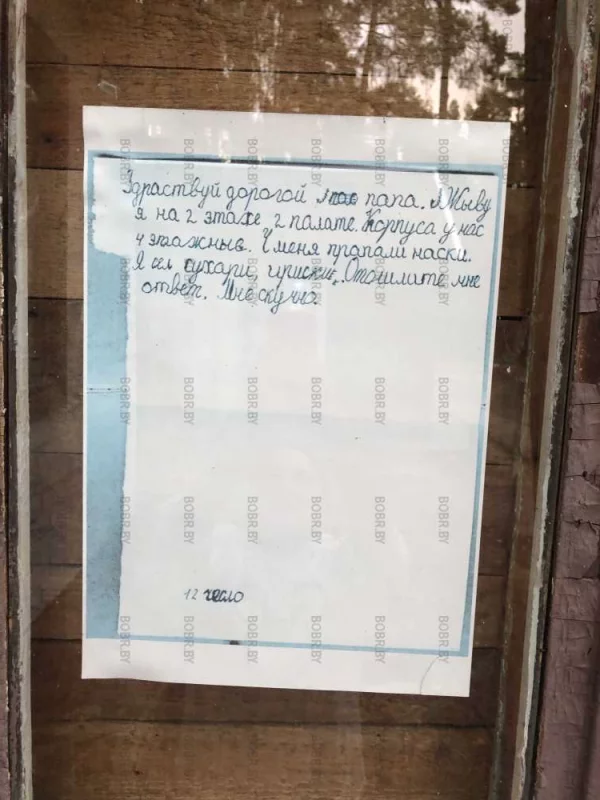 Здраствуй дорогой папа. Жыву
я на 2 этаже 2 палате. Корпуса у нас
4 этажные. У меня пропали наски.
Я ел сухари, ириски. Отошлите мне
ответ. Мне скучно.
12 число
BOBR.BY